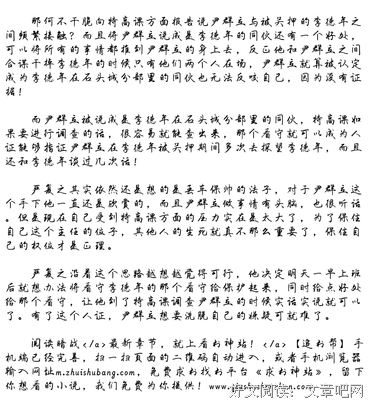 那何不干脆向特高课方面报告说尹群立与被关押的李德年之
间频繁接触？而且将尹群立说成是李德年的同伙还有一个好处，
可以将所有的事情都推到尹群立的身上去，反正他和尹群立之间
合谋干掉李德年的时候只有他们两个人在场，尹群立就算被认定
成为李德年在石头城分部里的同伙也无法反咬自己，因为没有证
据！
而尹群立被说成是李德年在石头城分部里的同伙，特高课如
果要进行调查的话，很容易就能查出来，那个看守就可以成为人
证能够指证尹群立在李德年被关押期间多次去探望李德年，而且
还和李德年谈过几次话！
严复之其实依然还是想的是丢车保帅的法子，对于尹群立这
个手下他一直还是欣赏的，而且尹群立做事情有头脑，也很听话
。但是现在自己受到特高课方面的压力实在是太大了，为了保住
自己这个主任的位子，其他人的生死就真不那么重要了，保住自
己的权位才是正理。
严复之沿着这个思路越想越觉得可行，他决定明天一早上班
后就想办法将看守李德年的那个看守给保护起来，同时给点好处
给那个看守，让他到了特高课调查尹群立的时候实话实说就可以
了。有了这个人证，尹群立想要洗脱自己的嫌疑可就难了。
阅读暗战</a>最新章节，就上看书神站！</a>【追书帮】手
机端已经完善，扫一扫页面的二维码自动进入，或者手机浏览器
输入网址m.zhuishubang.com，免费求书找书平台《求书神站》，留下
你想看的小说，我们免费为你提供！www.zhuishubang.com
好文阅读：文章吧网